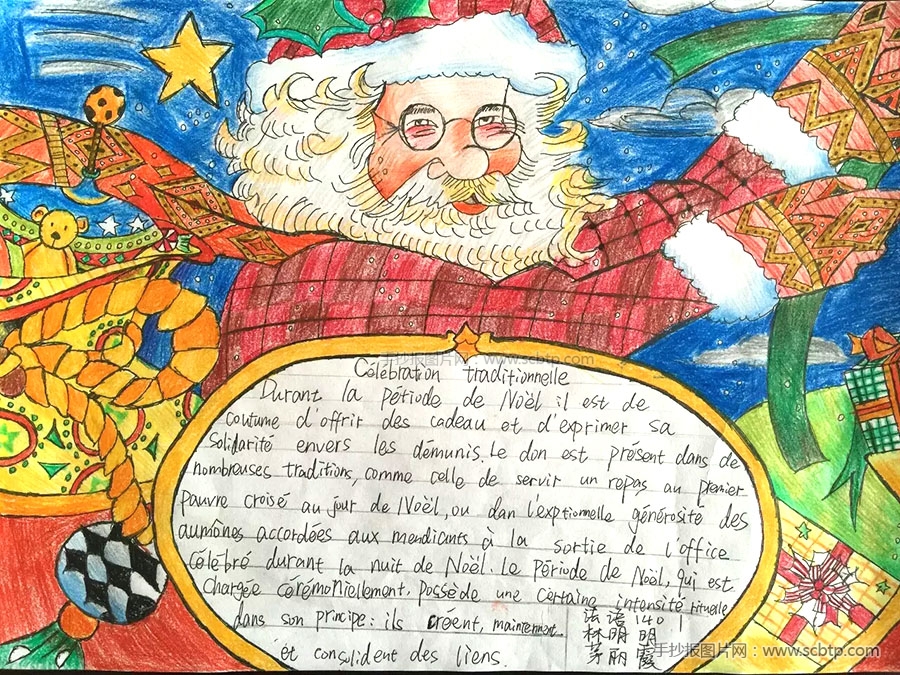 手抄报图片网：www.scbtp.com
Célébration traditionnelle
Durant la période de Noël il est de
coutume d'offrir des cadeau et d'exprimer sa
solidarité envers les démunis. Le don est présent dans de
nombreuses traditions, comme celle de servir un repas au premier
pauvre croisé au jour de Noël, ou dan l'exptionnelle générosité des
aumônes accordées aux mendiants à la sortie de l'office
célébré durant la nuit de Noël. Le période de Noël, qui est
chargée cérémoniellement, possède une certaine intensité rituelle
dans son principe: ils créent, maintennent
et consolident des liens.
法语1401
林明明
茅丽霞
手抄报图片网：www.scbtp.com